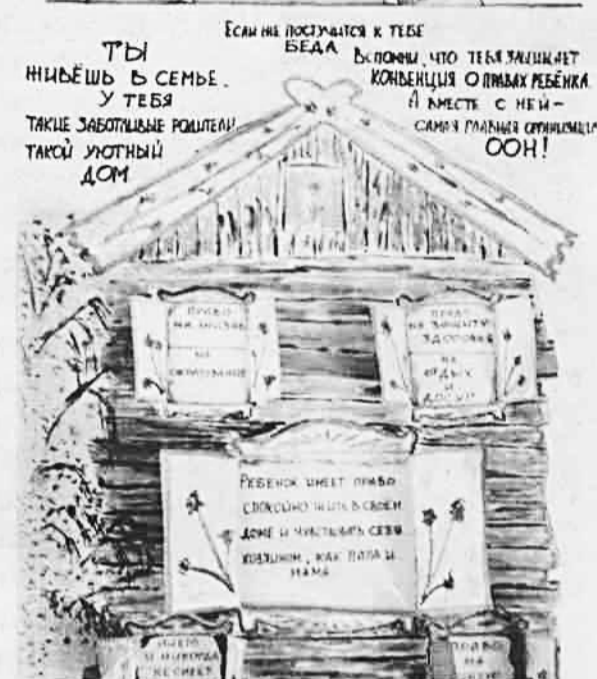 ТЫ
ЖИВЁШЬ В СЕМЬЕ.
У ТЕБЯ
ТАКИЕ ЗАБОТЛИВЫЕ РОДИТЕЛИ,
ТАКОЙ УЮТНЫЙ
ДОМ
ЕСЛИ ЖЕ ПОСТУЧИТСЯ К ТЕБЕ
БЕДА
ВСПОМНИ, ЧТО ТЕБЯ ЗАЩИЩАЕТ
КОНВЕНЦИЯ О ПРАВАХ РЕБЁНКА
А ВМЕСТЕ С НЕЙ –
САМАЯ ГЛАВНАЯ ОРГАНИЗАЦИЯ
ООН!
ПРАВО
НА ЖИЗНЬ
НА
ПРАВО
НА ЗАЩИТУ
ЗДОРОВЬЯ
НА
ОТДЫХ
И
ДОСУГ
РЕБЕНОК ИМЕЕТ ПРАВО
СПОКОЙНО ЖИТЬ В СВОЕМ
ДОМЕ И ЧУВСТВОВАТЬ СЕБЯ
ХОЗЯИНОМ, КАК ПАПА И
МАМА
НИКТО
И НИКОГДА
НЕ СМЕЕТ
ПРАВО
НА